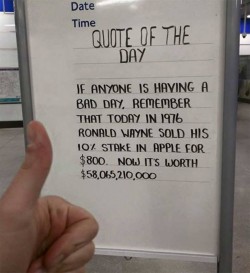 Date
Time
QUOTE OF THE
DAY
IF ANYONE IS HAVING A
BAD DAY, REMEMBER
THAT TODAY IN 1976
RONALD WAYNE SOLD HIS
10% STAKE IN APPLE FOR
$800. NOW IT'S WORTH
$58,065,210,000